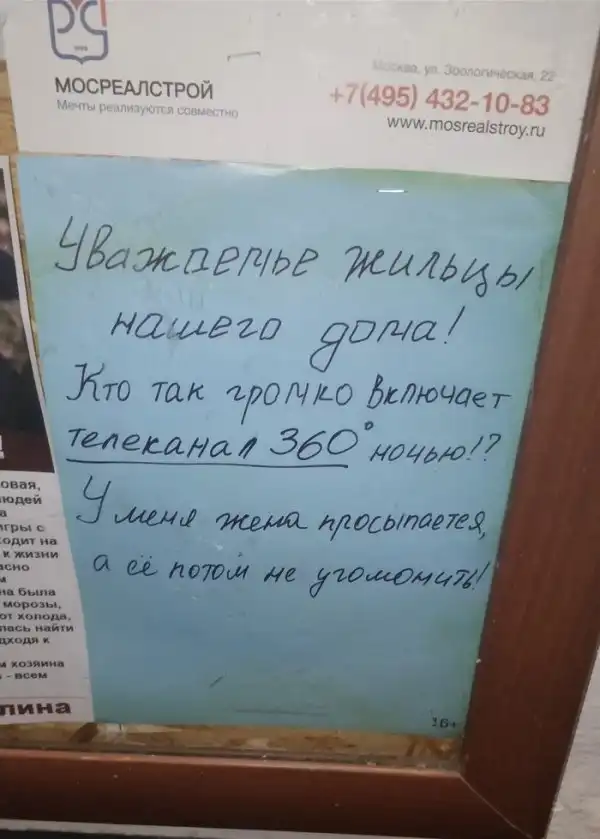 МОСРЕАЛСТРОЙ
Мечты реализуются совместно
Москва, ул. Зоологическая, 22
+7(495) 432-10-83
www.mosrealstroy.ru
Уважаемые жильцы
нашего дома!
Кто так громко включает
телеканал 360° ночью!?
У меня жена просыпается,
а её потом не угомонить!
16+
овая,
юдей
а
игры с
одит на
к жизни
асно
м
на была
морозы,
от холода,
лась найти
дходя к
м хозяина
- всем
лина